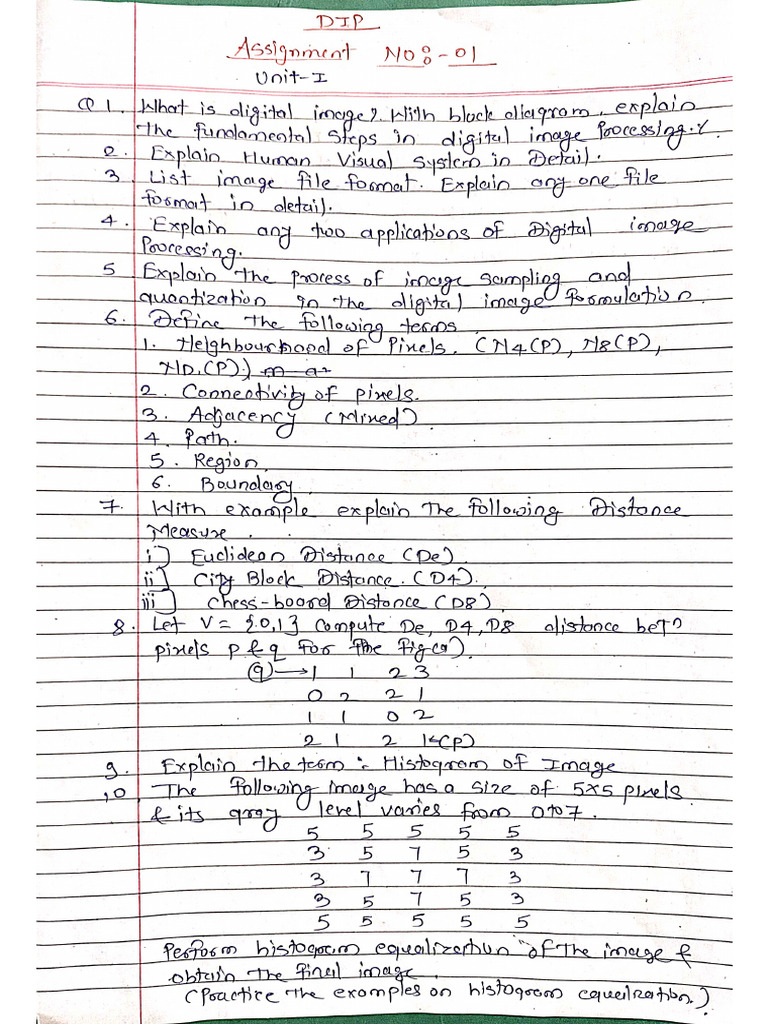 DIP
Assignment No:-01
Unit-I
Q 1. What is digital image? With block diagram, explain
the fundamental steps in digital image Processing.
2. Explain Human Visual System in Detail.
3 List image file format. Explain any one file
format in detail.
4. Explain any two applications of Digital image
Processing.
5 Explain the process of image sampling and
quantization in the digital image formulation.
6. Define the following terms.
1. Neighbourhood of Pixels. (N4(P), N8(P),
ND(P).)
2. Connectivity of pixels.
3. Adjacency (Mixed)
4. Path.
5. Region.
6. Boundary.
7. With example explain the following Distance
Measure.
i] Euclidean Distance (De).
ii] City Block Distance. (D4).
iii] Chess-board Distance (D8).
8. Let V = {0,1} compute De, D4, D8 distance betn
pixels p & q for the fig(a).
(q)→1 1 2 3
0 2 2 1
1 1 0 2
2 1 2 1<(P)
9. Explain the term: Histogram of Image
10. The following image has a size of 5x5 pixels
& its gray level varies from 0 to 7.
5 5 5 5 5
3 5 7 5 3
3 7 7 7 3
3 5 7 5 3
5 5 5 5 5
Perform histogram equalization of the image &
obtain the final image.
(Practice the examples on histogram equalization.)